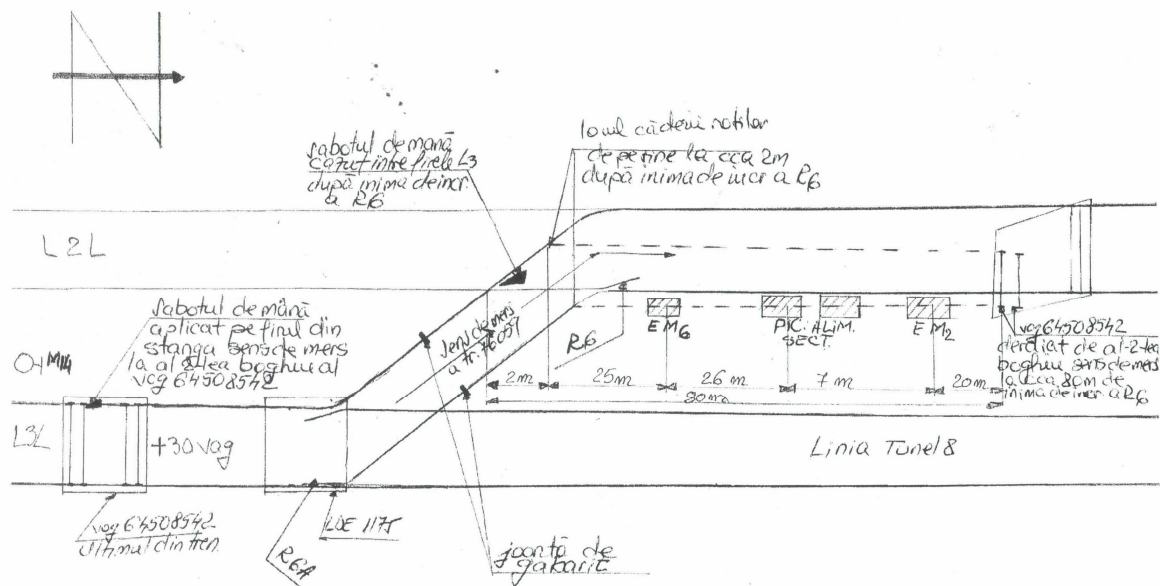 sabotul de mână
cazut între firele L3
după inima de incr.
a R6
locul căderii roților
de pe șine la cca 2m
după inima de incr a R6
L2L
sabotul de mână
aplicat pe firul din
stanga sens de mers
la al 2-lea boghiu al
vag 64508542
M14
sens de mers
a tr.
R6
EM6
PIC. ALIM.
SECT.
EM2
vag 64508542
deraiat de al-2-lea
boghiu sens de mers
la cca 80m de
inima de incr. a R6
2m
25m
26m
7m
20m
L3L
+30 vag
Linia Tunel 8
vag 64508542
ultimul din tren
R6A
LDE 1175
joantă de
gabarit